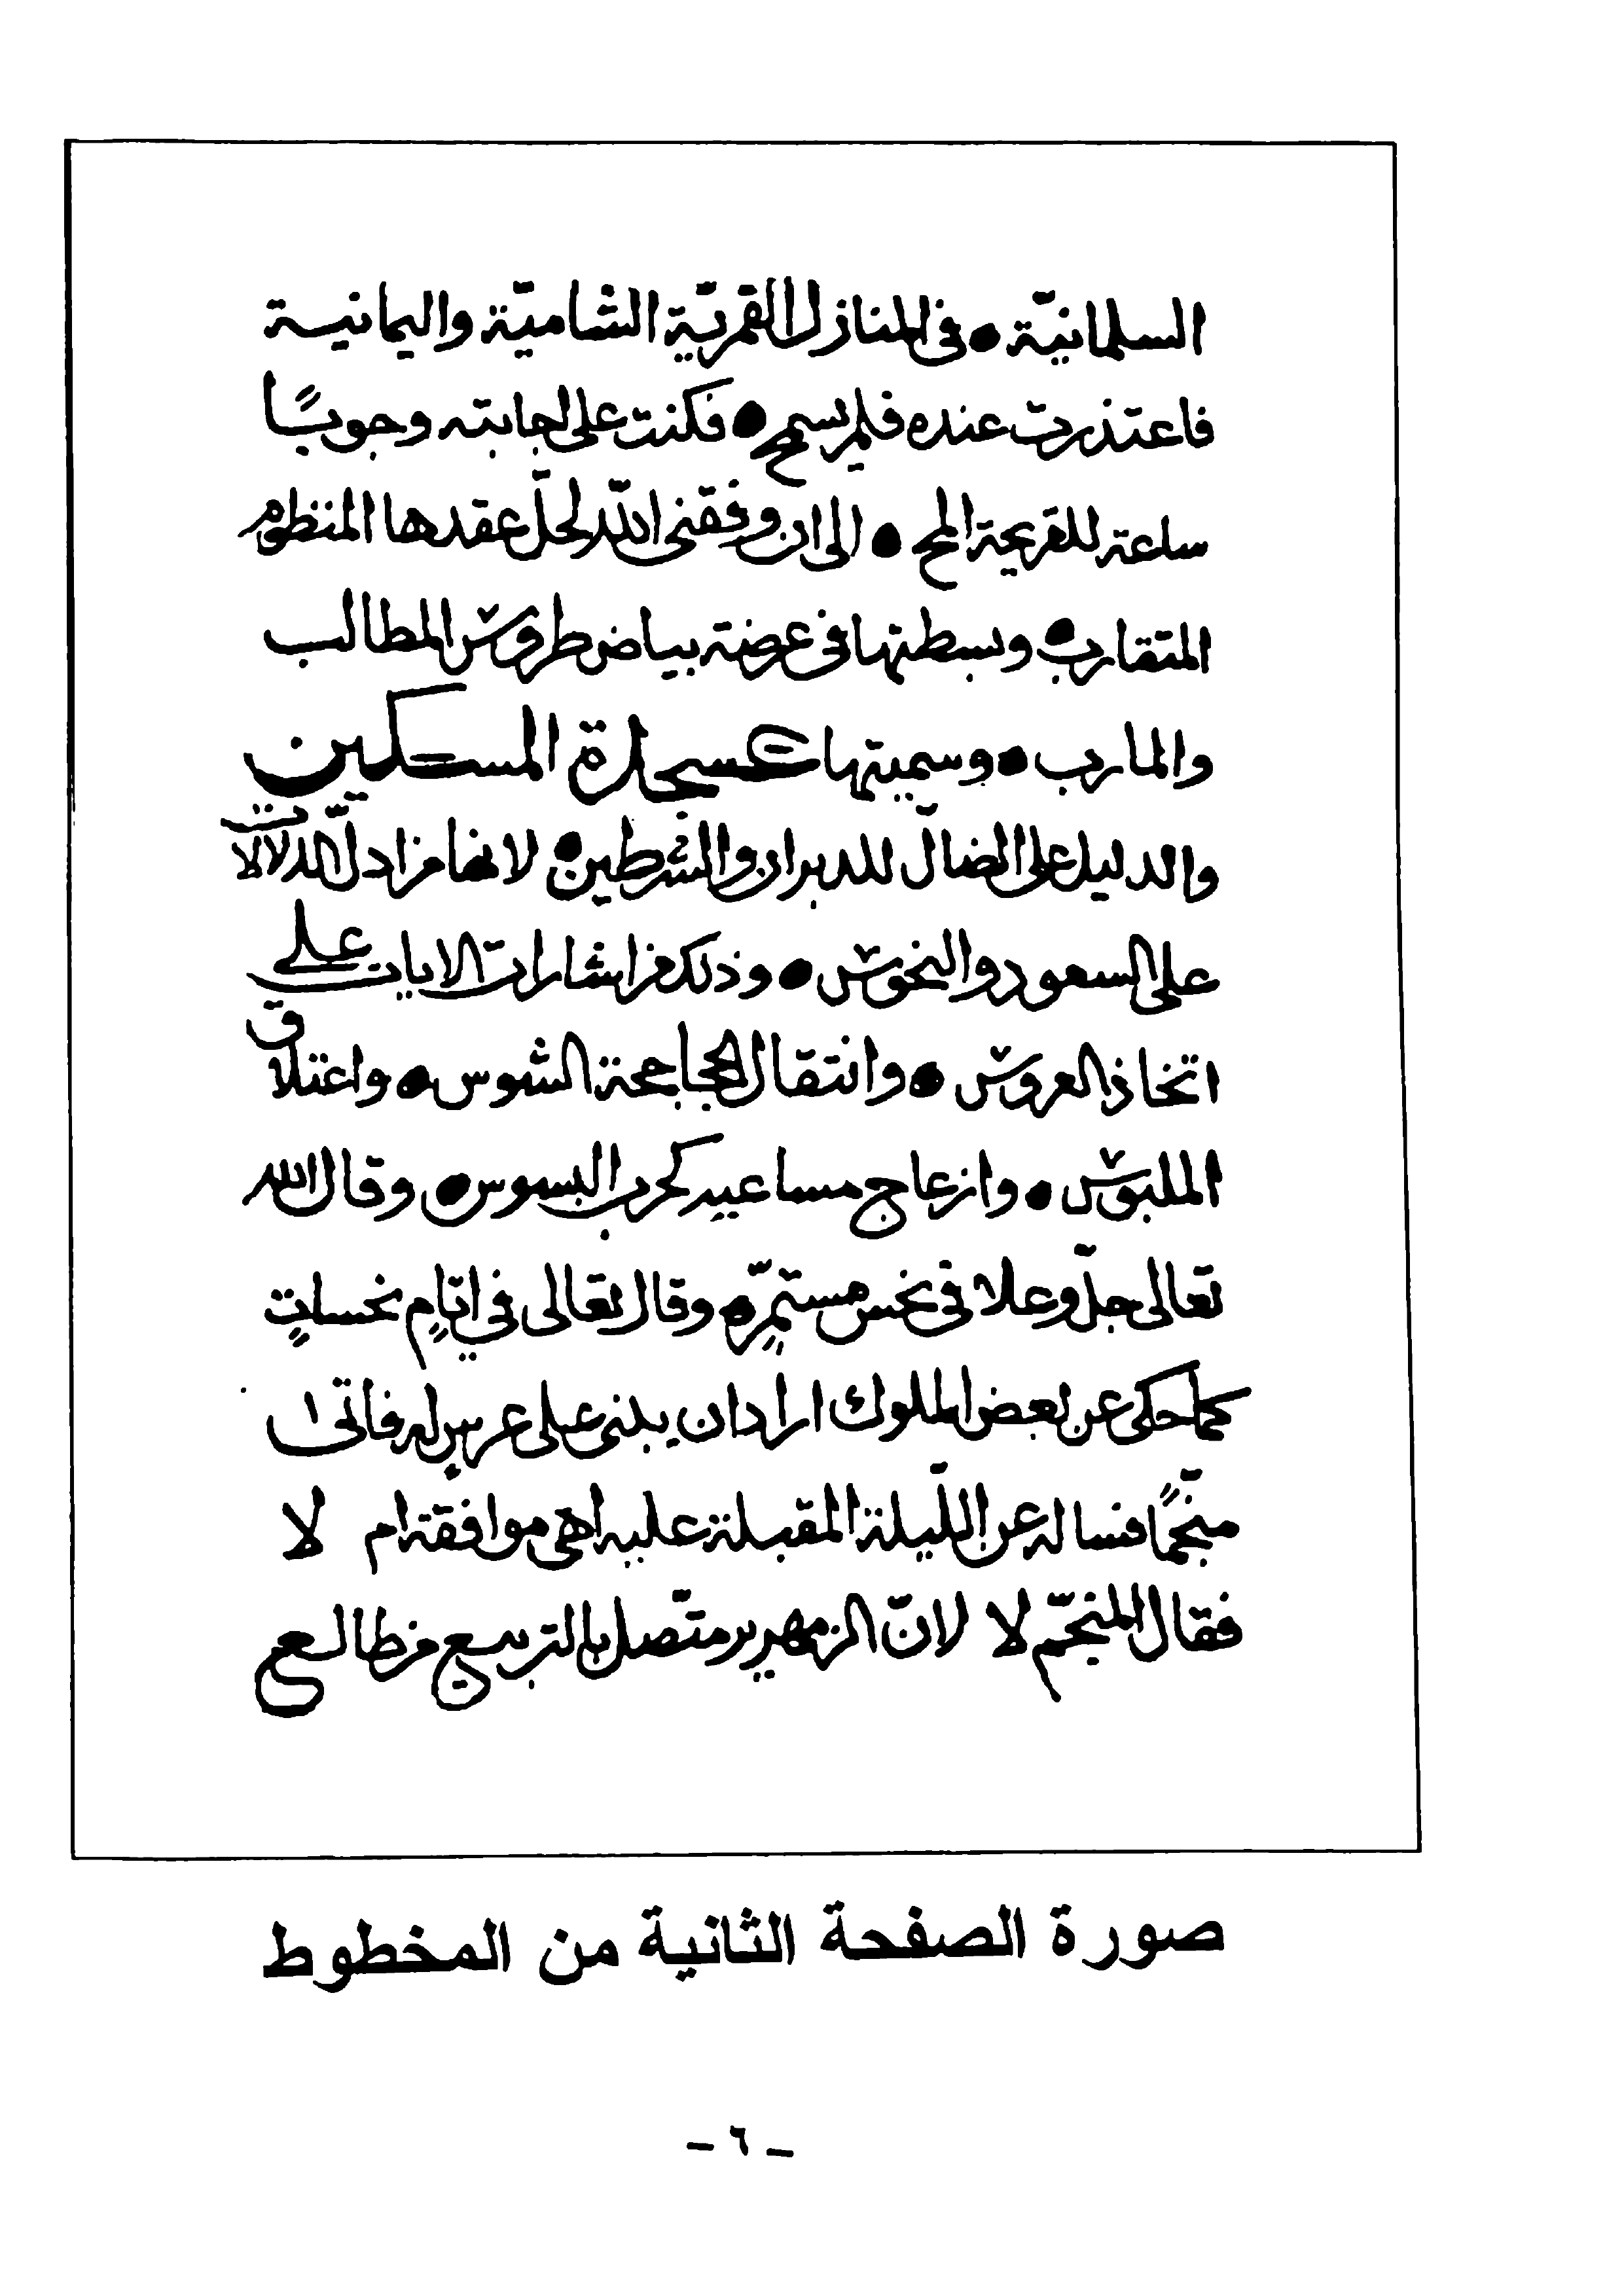 السلمانيّة • فى المنازل القمريّة الشاميّة واليمانيـة
فاعتذرت عنده فلم يسمح • فكنت على اجابته وجوبًا
ساعة للقريحة المح • الى ان وفقنى اللّه لحلّ عقدها المنظوم
المتقارب • وبسطتها فى عرضة بياض طروس المطالب
والمارب • وسميتها عسجدة المسكين
والدليل على الضالّ للدبران والشرطين • لانها من ادلّ الدلالات
على السعود والنحوس • وذلك من اشارات الايات على
اتخاذ العروس • وانتقال الججاجحة الشوس • واعتلاق
الملبوس • وازعاج مساعيد كحرب البسوس • وقال الله
تعالى جلّ وعلا فى نحس مستمرّ • وقال تعالى فى ايّامٍ نحساتٍ
كما حكى عن بعض الملوك اراد ان يبنى على عرس له فاتى
منجّمًا فساله عن اللّيلة المقبلة عليه اهى موافقة ام لا
فقال المنجّم لا لانّ الزمهرير متّصل بالتربيع من طالع
صورة الصفحة الثانية من المخطوط
- ٦ -